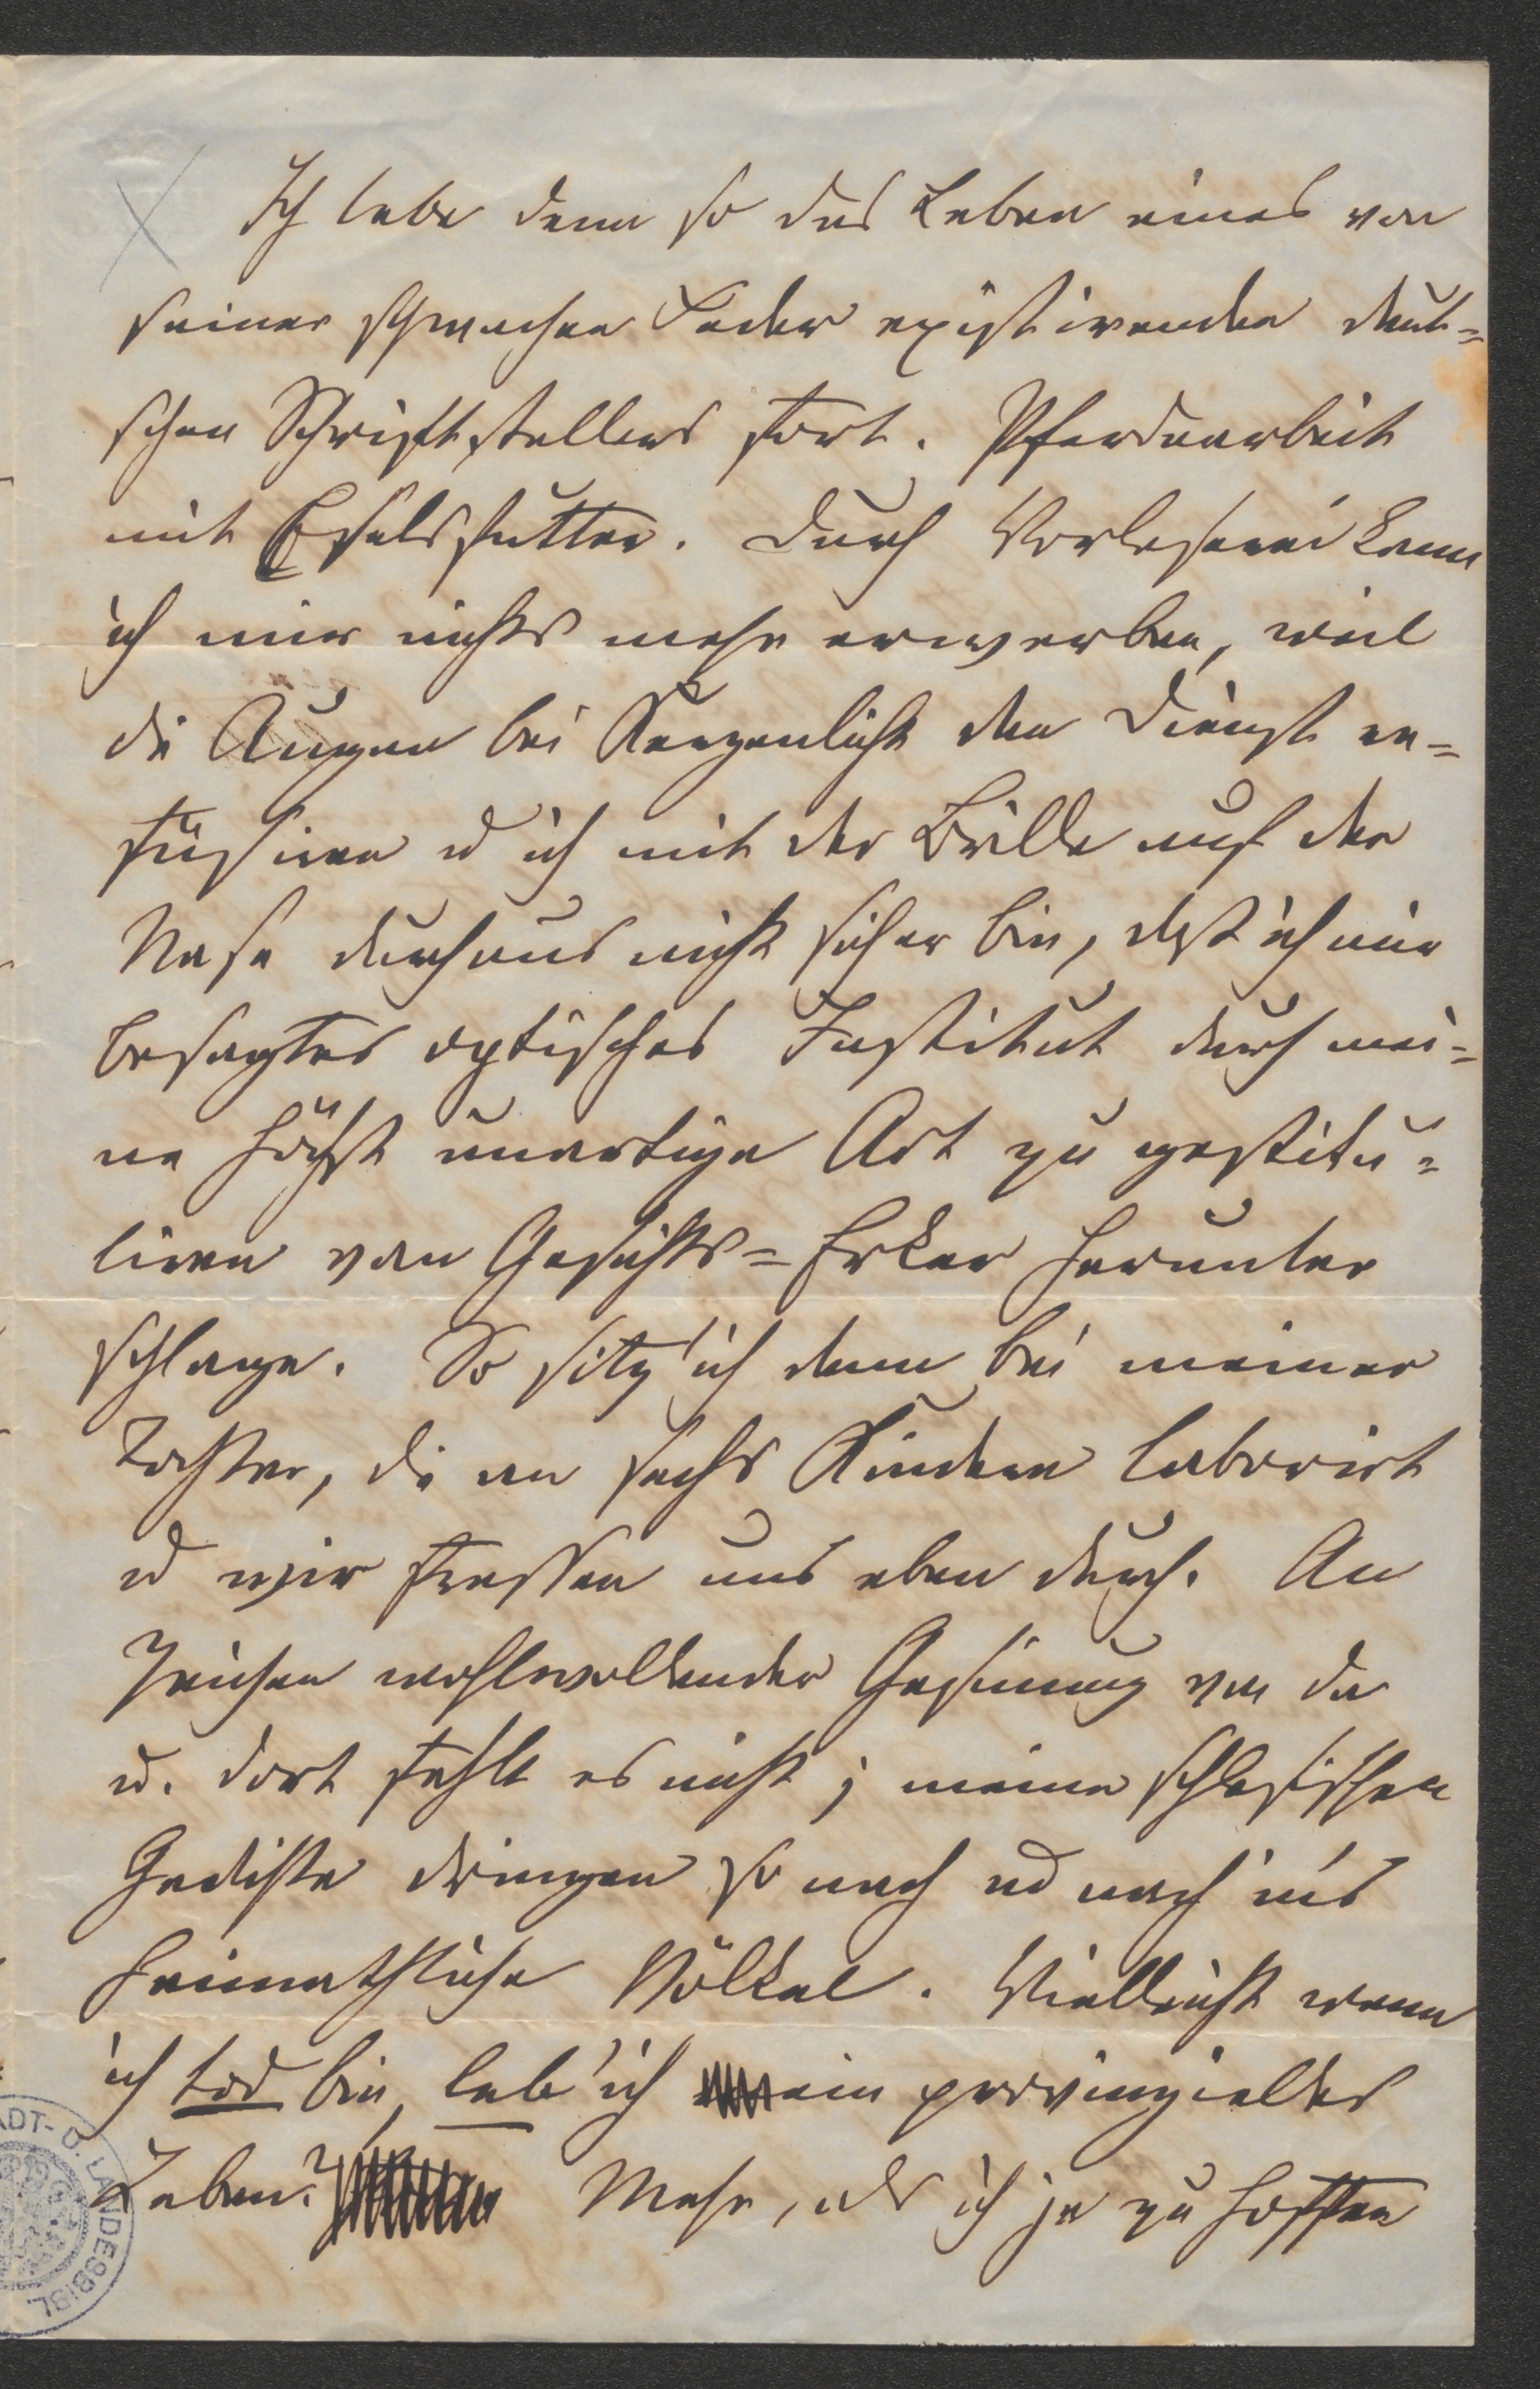 Ich lebe denn so das Leben eines von
seiner schwachen Feder existirenden deut=
schen Schriftstellers fort. Pferdearbeit
mit Eselsfutter. Durch Vorleserei kann
ich mir nichts mehr erwerben, weil
die Augen bei Kerzenlicht den Dienst re=
füsiren u ich mit der Brille auf der
Nase durchaus nicht sicher bin, daß ich mir
besagtes optisches Institut durch mei=
ne höchst unartige Art zu gestiku=
liren vom Gesichts=Erker herunter
schlage. So sitz' ich denn bei meiner
Tochter, die an sechs Kindern laborirt
u wir fressen uns eben durch. An
Zeichen wohlwollender Gesinnung von da
u. dort fehlt es nicht; meine schlesischen
Gedichte dringen so nach und nach in's
heimathliche Völkel. Vielleicht wenn
ich tod bin, leb' ich ein provinzielles
Leben? Mehr, als ich je zu hoffen
STADT- U. LANDESBIBL.